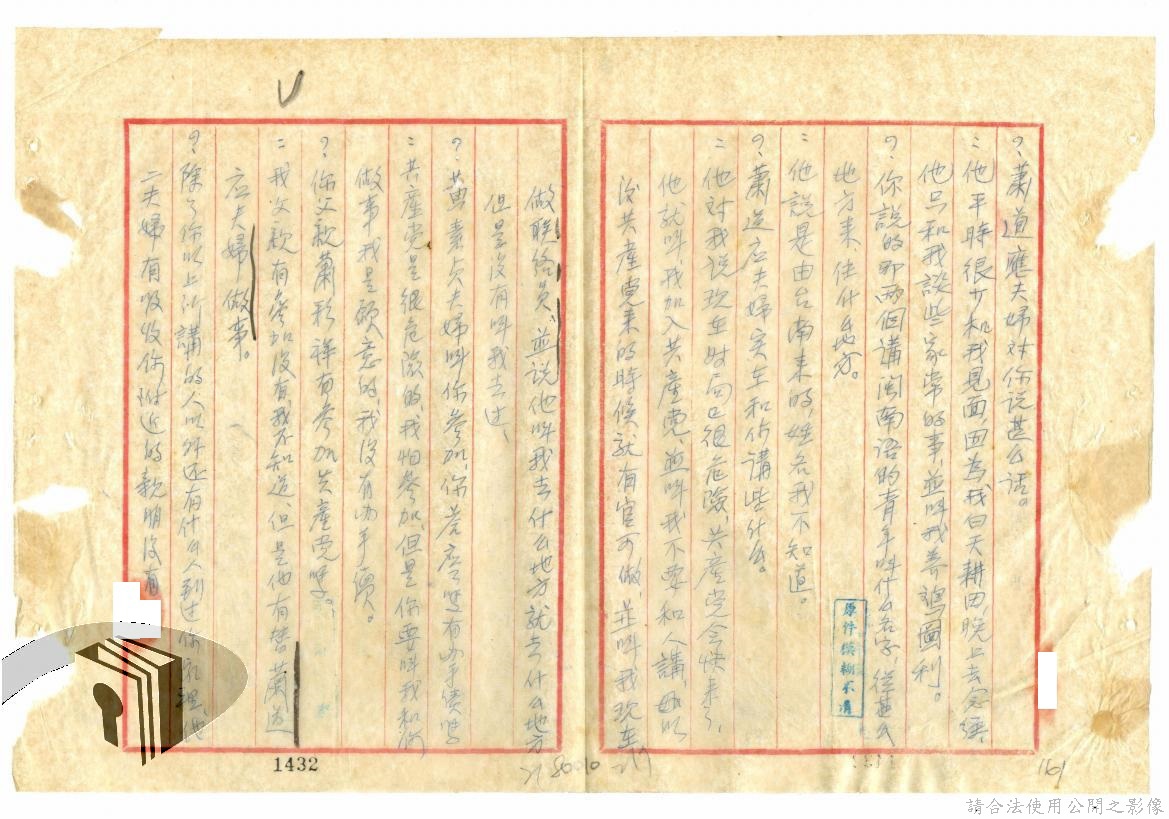 ？、蕭道應夫婦對你说甚么话。
：他平時很少和我見面因為我白天耕田，晚上去念经
他只和我談些家常的事，並叫我养鸡圖利。
？、你說的那两個講闽南语的青年叫什么名字，從甚么
地方来、住什么地方。
：他說是由台南来的，姓名我不知道。
？、蕭道应夫婦实在和你講些什么。
：他对我说现在时局已很危險，共產党会快来了，
他就叫我加入共產党，並叫我不要和人講，如以
後共產党来的時候就有官可做，並叫我现在
做联络员、並说他叫我去什么地方就去什么地方
但是没有叫我去过、
？、黄素贞夫婦叫你参加，你答应了嗎有办手续嗎
：共產党是很危險的，我怕参加，但是你要叫我和你
做事我是願意的，我没有办手續。
？、你父親蕭形祥有参加共產党呼。
：我父親有参加没有我不知道、但是他有替蕭道
应夫婦做事。
？、除了你以上所講的人以外还有什么人到过你家裡他
：夫婦有吸收你附近的親朋没有
原件模糊不清
1432
161
請合法使用公開之影像